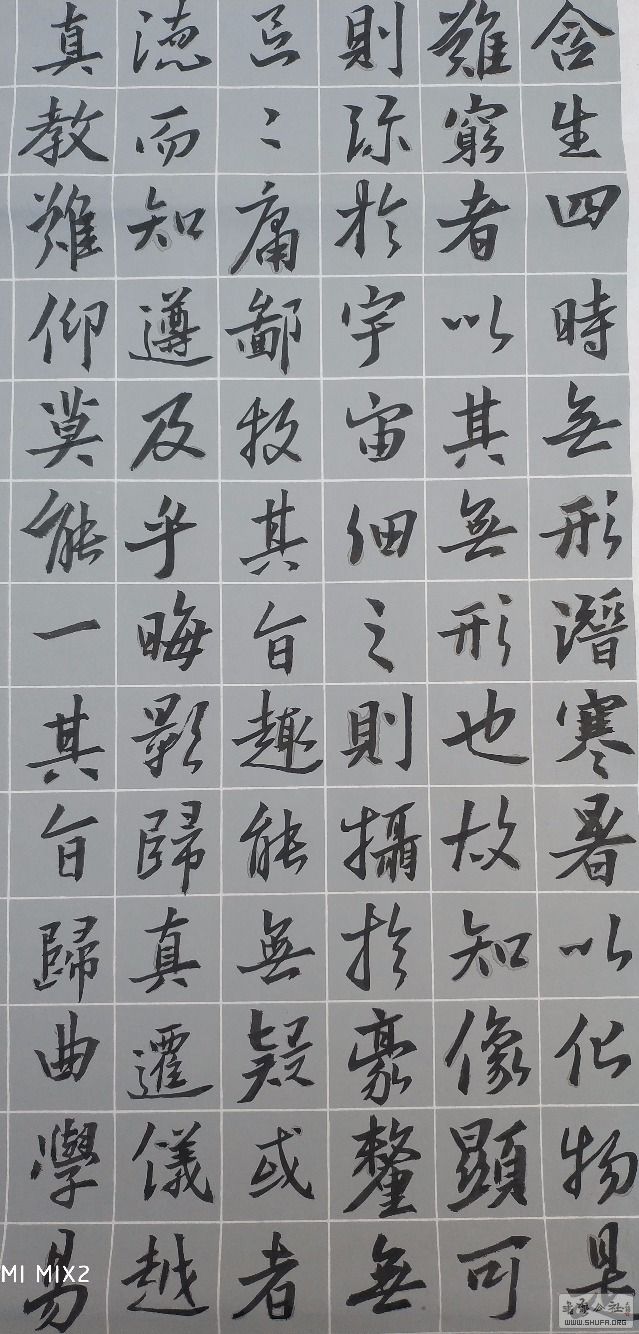 含生四時無形潛寒暑以化物是
難窮者以其無形也故知像顯可
則弥於宇宙細之則攝於豪釐無
區〻庸鄙投其旨趣能無疑或者
德而知遵及乎晦影歸真遷儀越
真教難仰莫能一其旨歸曲學易
MI MIX2
WWW.SHUFA.ORG